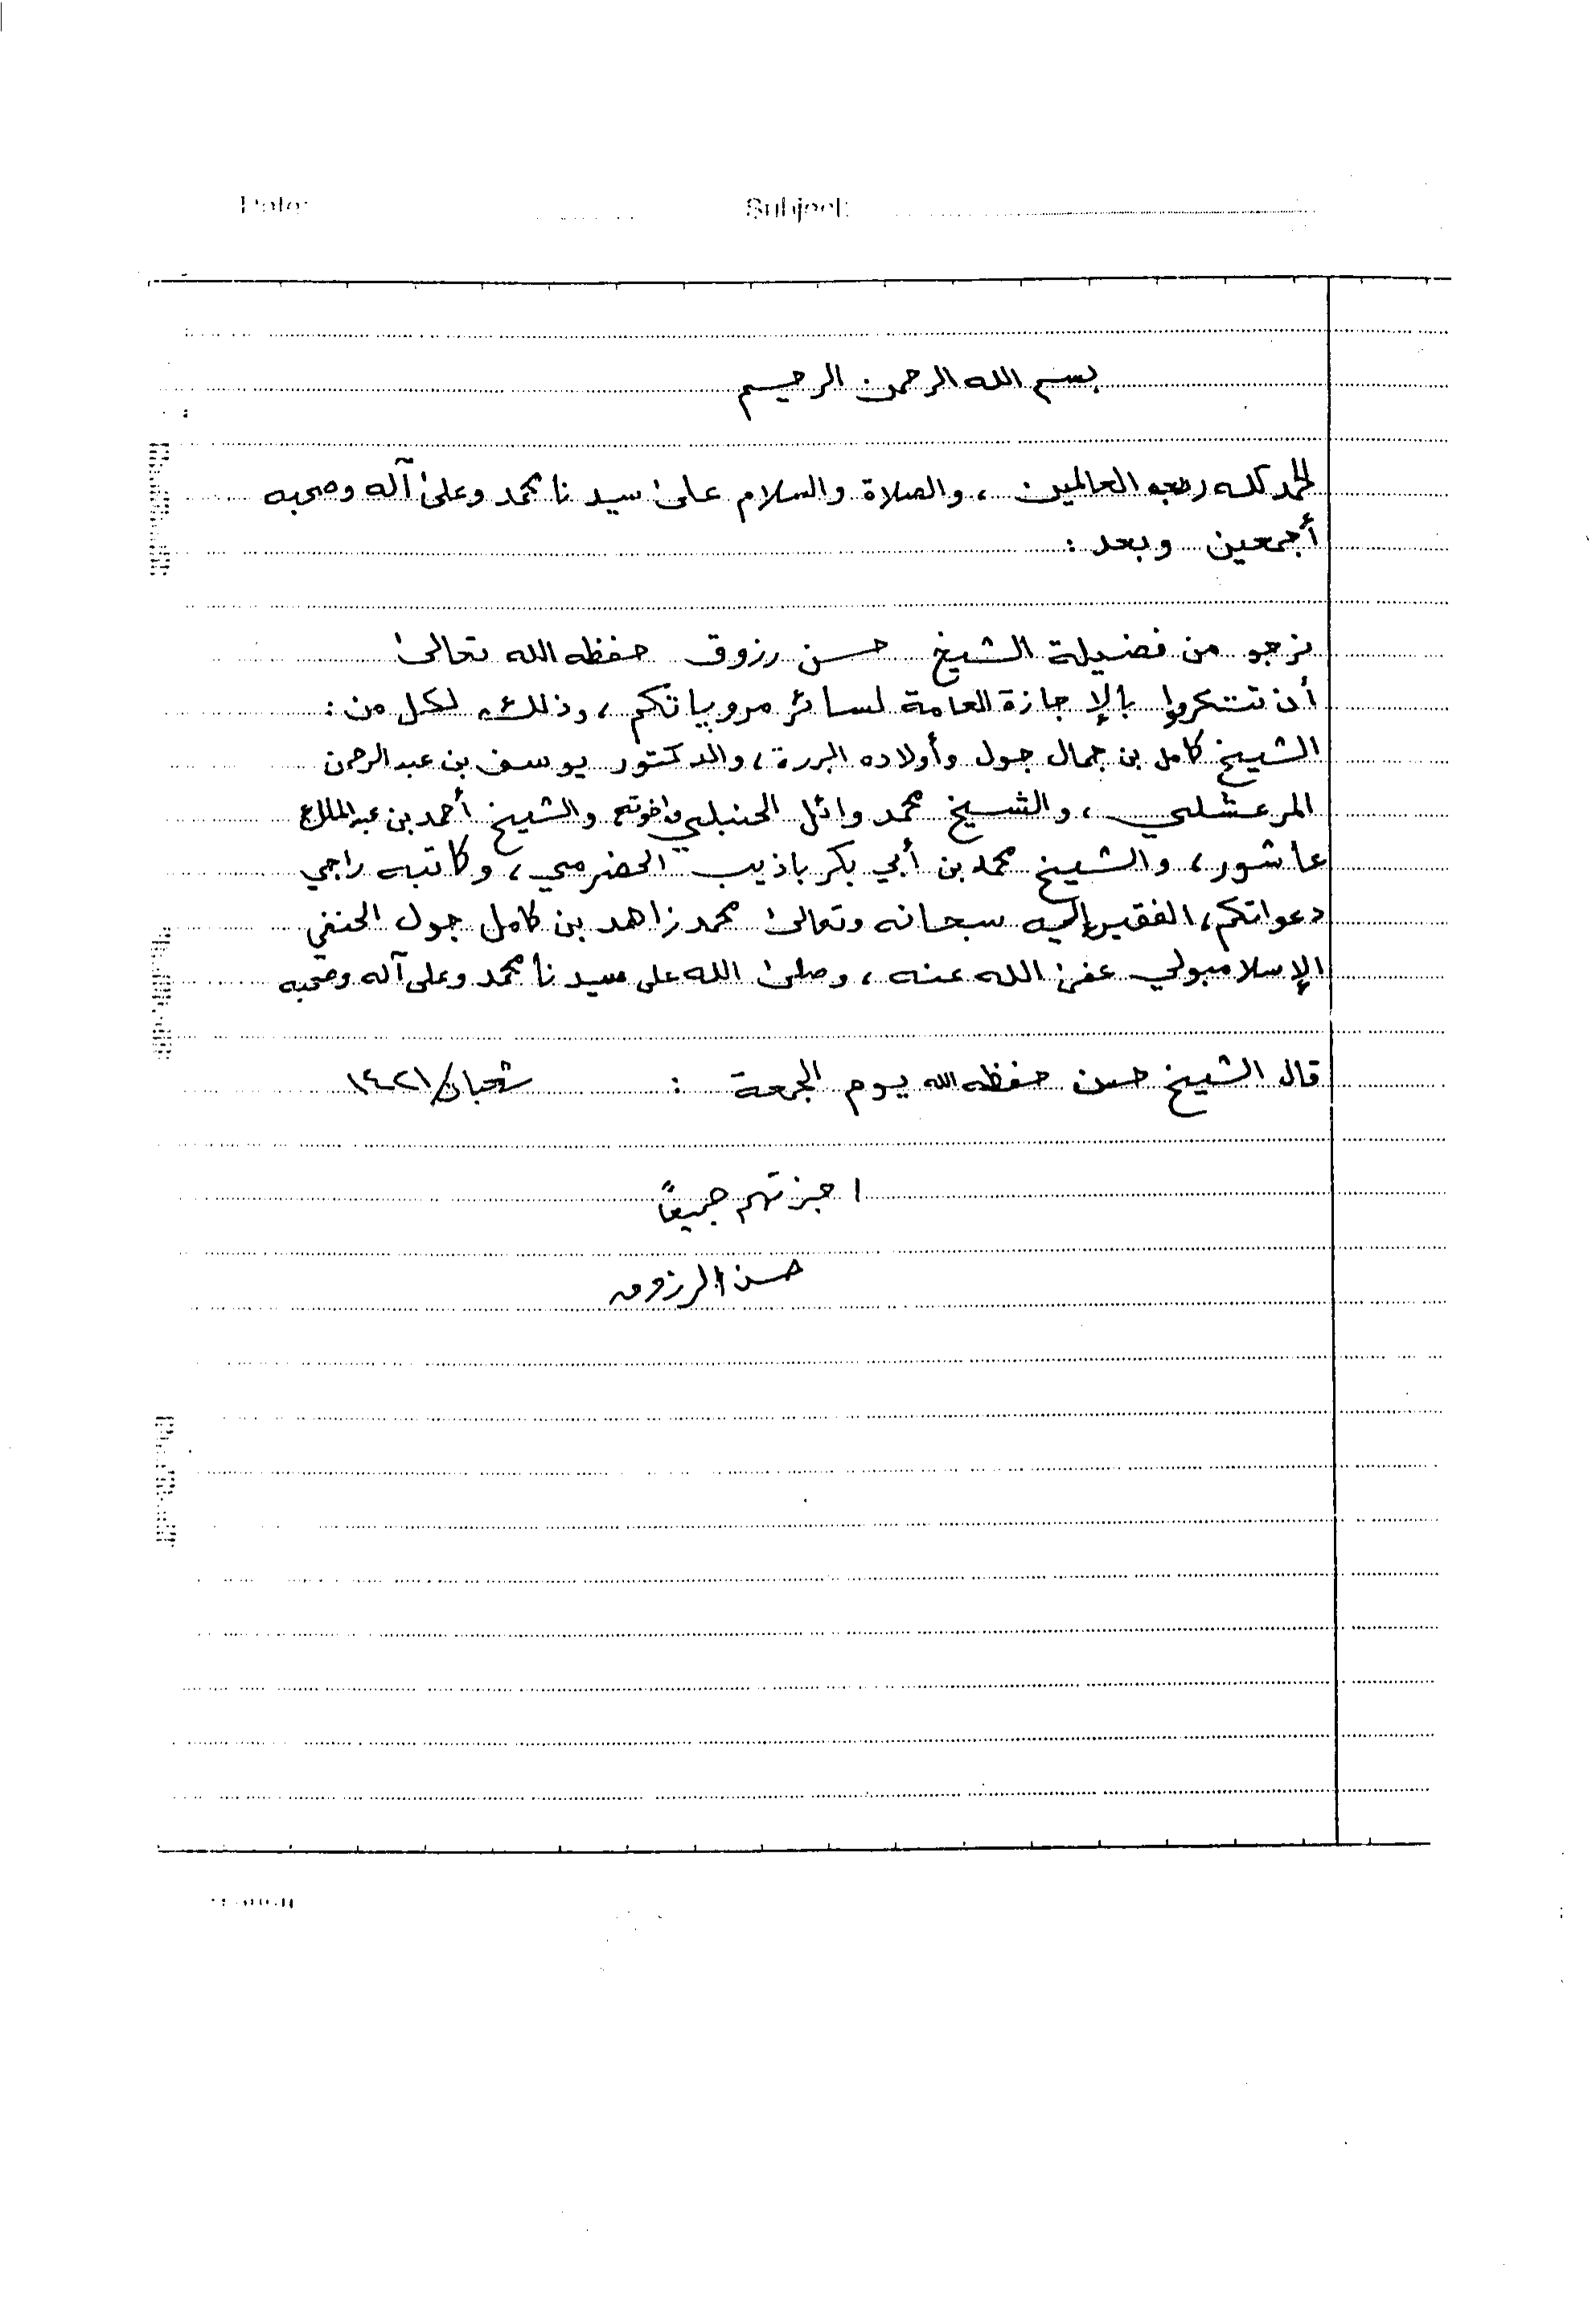 Date: Subject:
بسم الله الرحمن الرحيم
الحمد لله رب العالمين ، والصلاة والسلام على سيدنا محمد وعلى آله وصحبه
أجمعين وبعد :
نرجو من فضيلة الشيخ حسن رزوق حفظه الله تعالى
أن تتكرموا بالإجازة العامة لسائر مروياتكم ، وذلك لكل من :
الشيخ كامل بن جمال جول وأولاده البررة ، والدكتور يوسف بن عبد الرحمن
المرعشلي ، والشيخ محمد وائل الحنبلي وإخوته والشيخ أحمد بن عبد الملك
عاشور ، والشيخ محمد بن أبي بكر باذيب الحضرمي ، وكاتبه راجي
دعواتكم ، الفقير إليه سبحانه وتعالى محمد زاهد بن كامل جول الحنفي
الإسلامبولي عفى الله عنه ، وصلى الله على سيدنا محمد وعلى آله وصحبه
قال الشيخ حسن حفظه الله يوم الجمعة : شعبان/١٤٢١
اجزتهم جميعاً
حسن الرزوق